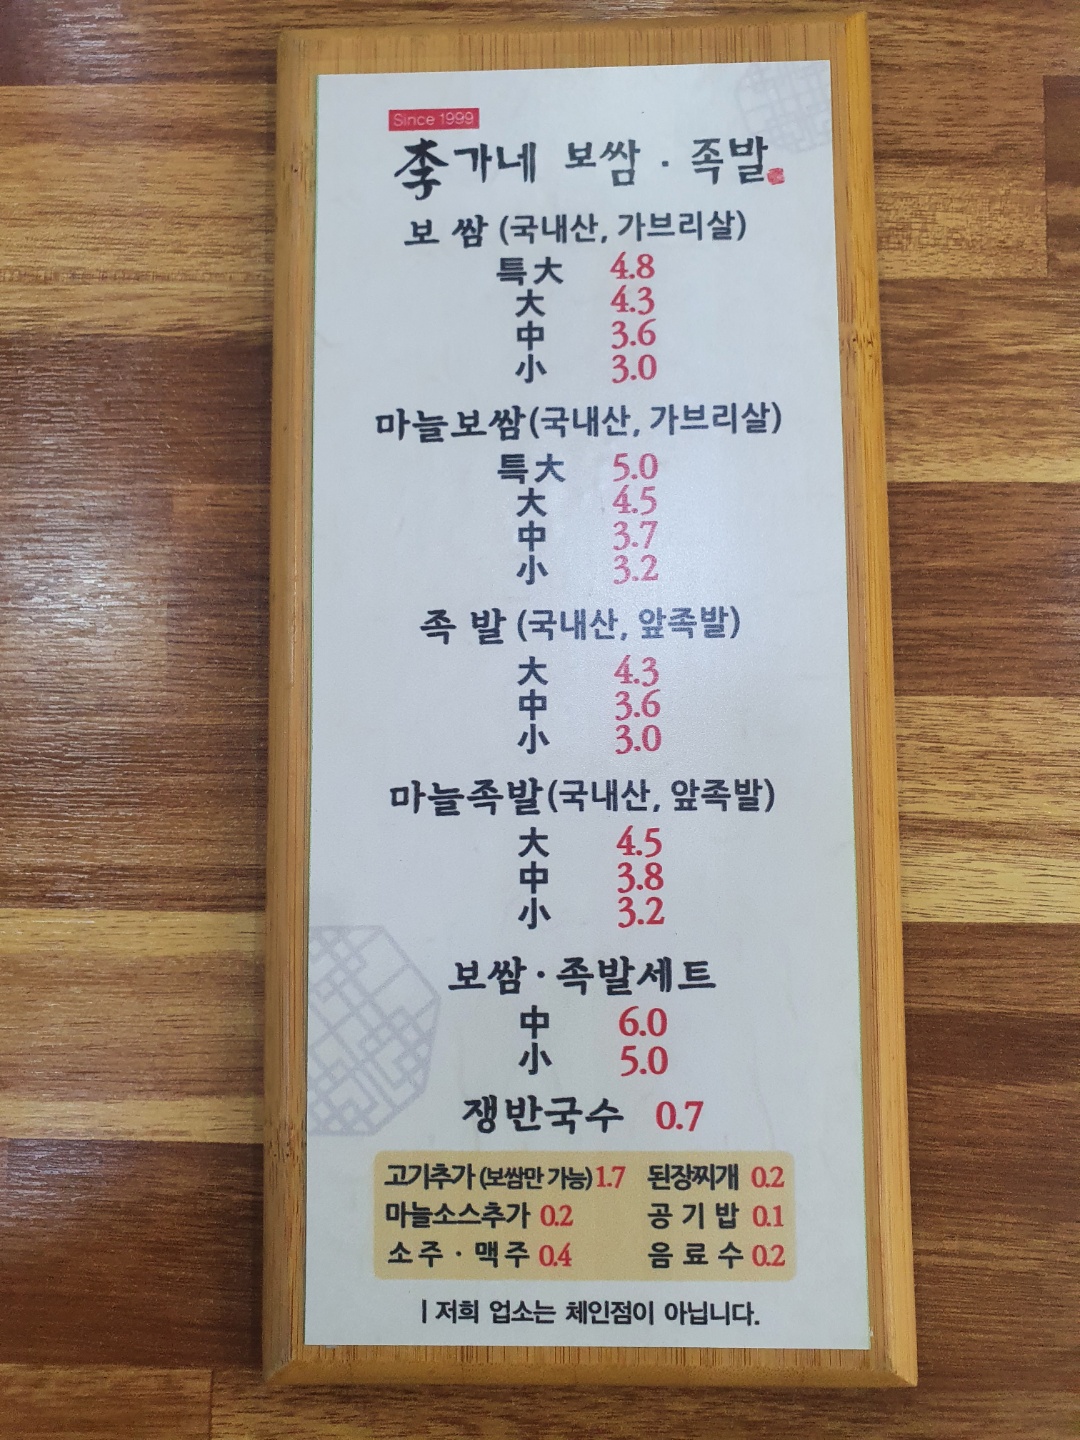 Since 1999
李가네 보쌈 · 족발
보 쌈 (국내산, 가브리살)
특大 4.8
大 4.3
中 3.6
小 3.0
마늘보쌈(국내산, 가브리살)
특大 5.0
大 4.5
中 3.7
小 3.2
족 발 (국내산, 앞족발)
大 4.3
中 3.6
小 3.0
마늘족발(국내산, 앞족발)
大 4.5
中 3.8
小 3.2
보쌈·족발세트
中 6.0
小 5.0
쟁반국수 0.7
고기추가 (보쌈만 가능) 1.7 된장찌개 0.2
마늘소스추가 0.2 공 기 밥 0.1
소 주 · 맥 주 0.4 음 료 수 0.2
| 저희 업소는 체인점이 아닙니다.